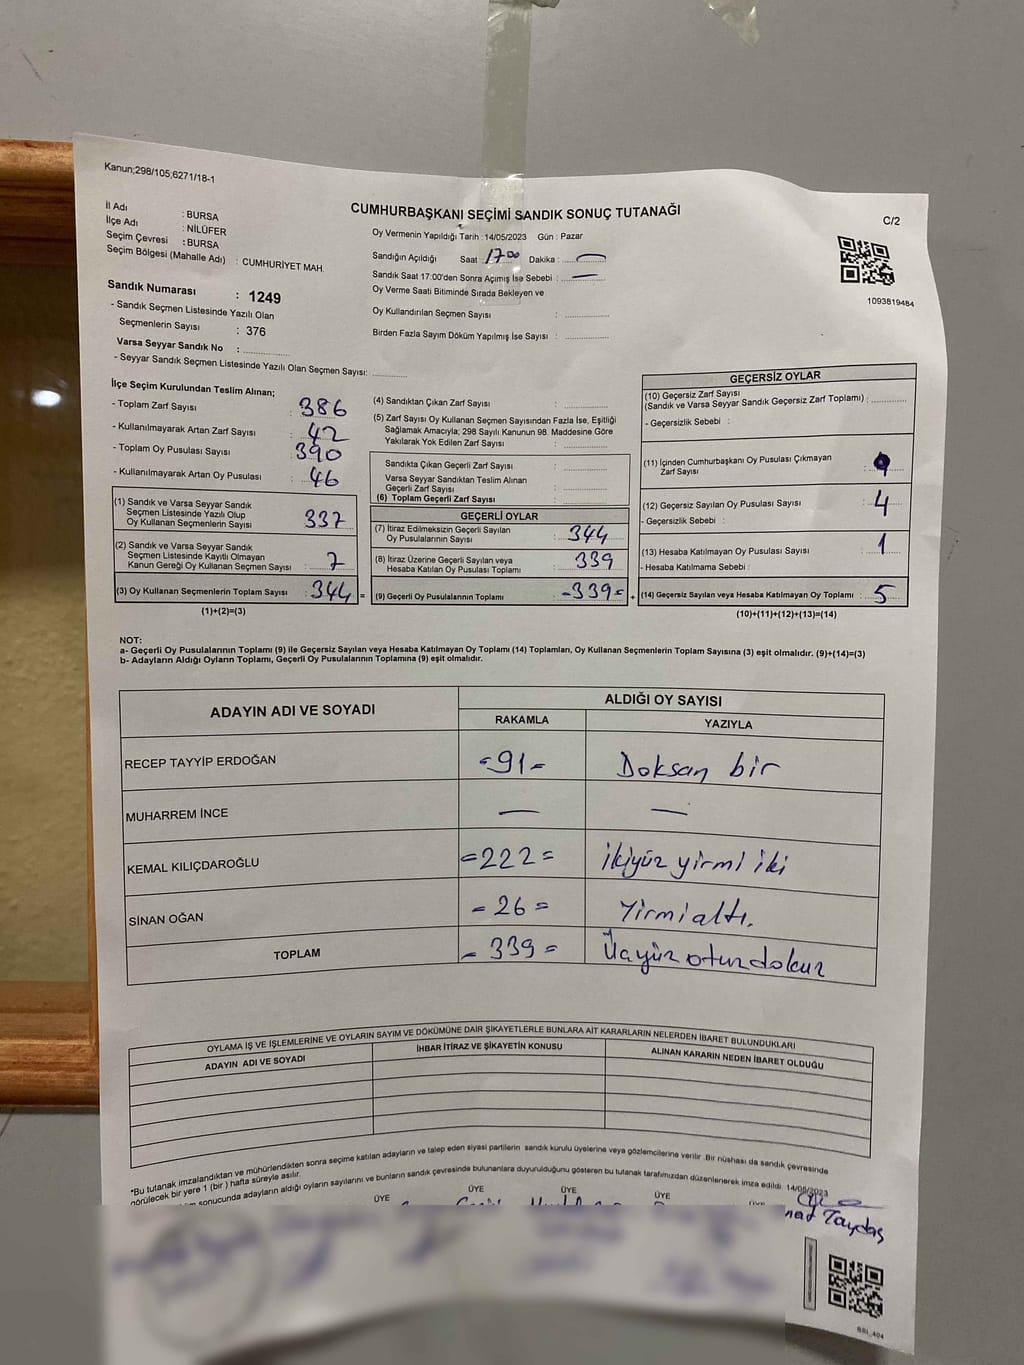 Kanun;298/105;6271/18-1
CUMHURBAŞKANI SEÇİMİ SANDIK SONUÇ TUTANAĞI
C/2
İl Adı : BURSA
İlçe Adı : NİLÜFER
Seçim Çevresi : BURSA
Seçim Bölgesi (Mahalle Adı) : CUMHURİYET MAH.
Sandık Numarası : 1249
- Sandık Seçmen Listesinde Yazılı Olan
Seçmenlerin Sayısı : 376
Varsa Seyyar Sandık No :
- Seyyar Sandık Seçmen Listesinde Yazılı Olan Seçmen Sayısı:
Oy Vermenin Yapıldığı Tarih :14/05/2023 Gün : Pazar
Sandığın Açıldığı Saat : 17 00 Dakika : —
Sandık Saat 17:00'den Sonra Açımış İse Sebebi : —
Oy Verme Saati Bitiminde Sırada Bekleyen ve
Oy Kullandırılan Seçmen Sayısı :
Birden Fazla Sayım Döküm Yapılmış İse Sayısı :
1093819484
İlçe Seçim Kurulundan Teslim Alınan;
- Toplam Zarf Sayısı : 386
- Kullanılmayarak Artan Zarf Sayısı : 42
- Toplam Oy Pusulası Sayısı : 390
- Kullanılmayarak Artan Oy Pusulası : 46
(1) Sandık ve Varsa Seyyar Sandık
Seçmen Listesinde Yazılı Olup
Oy Kullanan Seçmenlerin Sayısı : 337
(2) Sandık ve Varsa Seyyar Sandık
Seçmen Listesinde Kayıtlı Olmayan
Kanun Gereği Oy Kullanan Seçmen Sayısı : 7
(3) Oy Kullanan Seçmenlerin Toplam Sayısı : 344 =
(1)+(2)=(3)
(4) Sandıktan Çıkan Zarf Sayısı :
(5) Zarf Sayısı Oy Kullanan Seçmen Sayısından Fazla İse, Eşitliği
Sağlamak Amacıyla; 298 Sayılı Kanunun 98. Maddesine Göre
Yakılarak Yok Edilen Zarf Sayısı :
Sandıkta Çıkan Geçerli Zarf Sayısı :
Varsa Seyyar Sandıktan Teslim Alınan
Geçerli Zarf Sayısı :
(6) Toplam Geçerli Zarf Sayısı :
GEÇERLİ OYLAR
(7) İtiraz Edilmeksizin Geçerli Sayılan
Oy Pusulalarının Sayısı : 344
(8) İtiraz Üzerine Geçerli Sayılan veya
Hesaba Katılan Oy Pusulası Toplamı : 339
(9) Geçerli Oy Pusulalarının Toplamı : -339= +
GEÇERSİZ OYLAR
(10) Geçersiz Zarf Sayısı
(Sandık ve Varsa Seyyar Sandık Geçersiz Zarf Toplamı) :
- Geçersizlik Sebebi :
(11) İçinden Cumhurbaşkanı Oy Pusulası Çıkmayan
Zarf Sayısı :
(12) Geçersiz Sayılan Oy Pusulası Sayısı : 4
- Geçersizlik Sebebi :
(13) Hesaba Katılmayan Oy Pusulası Sayısı : 1
- Hesaba Katılmama Sebebi :
(14) Geçersiz Sayılan veya Hesaba Katılmayan Oy Toplamı : 5
(10)+(11)+(12)+(13)=(14)
NOT:
a- Geçerli Oy Pusulalarının Toplamı (9) ile Geçersiz Sayılan veya Hesaba Katılmayan Oy Toplamı (14) Toplamları, Oy Kullanan Seçmenlerin Toplam Sayısına (3) eşit olmalıdır. (9)+(14)=(3)
b- Adayların Aldığı Oyların Toplamı, Geçerli Oy Pusulalarının Toplamına (9) eşit olmalıdır.
ADAYIN ADI VE SOYADI
ALDIĞI OY SAYISI
RAKAMLA YAZIYLA
RECEP TAYYİP ERDOĞAN =91= Doksan bir
MUHARREM İNCE — —
KEMAL KILIÇDAROĞLU =222= ikiyüz yirmi iki
SİNAN OĞAN =26= Yirmialtı.
TOPLAM =339= Üçyüz otuzdokuz
OYLAMA İŞ VE İŞLEMLERİNE VE OYLARIN SAYIM VE DÖKÜMÜNE DAİR ŞİKAYETLERLE BUNLARA AİT KARARLARIN NELERDEN İBARET BULUNDUKLARI
ADAYIN ADI VE SOYADI İHBAR İTİRAZ VE ŞİKAYETİN KONUSU ALINAN KARARIN NEDEN İBARET OLDUĞU
*Bu tutanak imzalandıktan ve mühürlendikten sonra seçime katılan adayların ve talep eden siyasi partilerin sandık kurulu üyelerine veya gözlemcilerine verilir. Bir nüshası da sandık çevresinde
görülecek bir yere 1 (bir) hafta süreyle asılır.
sonucunda adayların aldığı oyların sayılarını ve bunların sandık çevresinde bulunanlara duyurulduğunu gösteren bu tutanak tarafımızdan düzenlenerek imza edildi. 14/05/2023
ÜYE ÜYE ÜYE ÜYE ÜYE
Taydaş